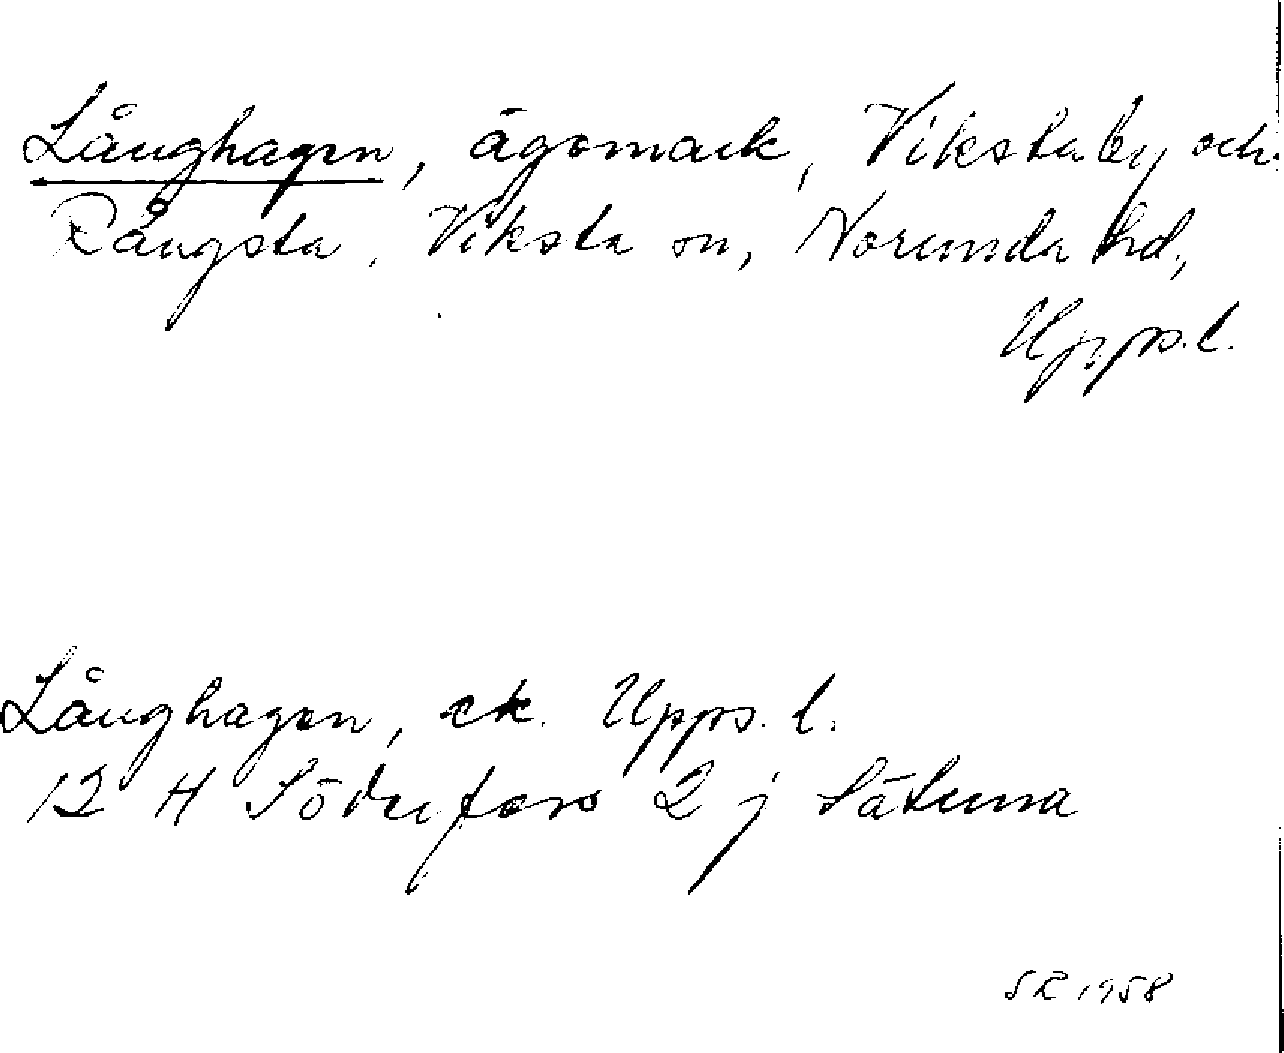 Långhagen, ägomark, Viksta by och
Rångsta, Viksta sn, Norunda hd,
Upps. l.
Långhagen, ek. Upps. l.
12 H Söderfors 2 j Sätuna
SR 1958